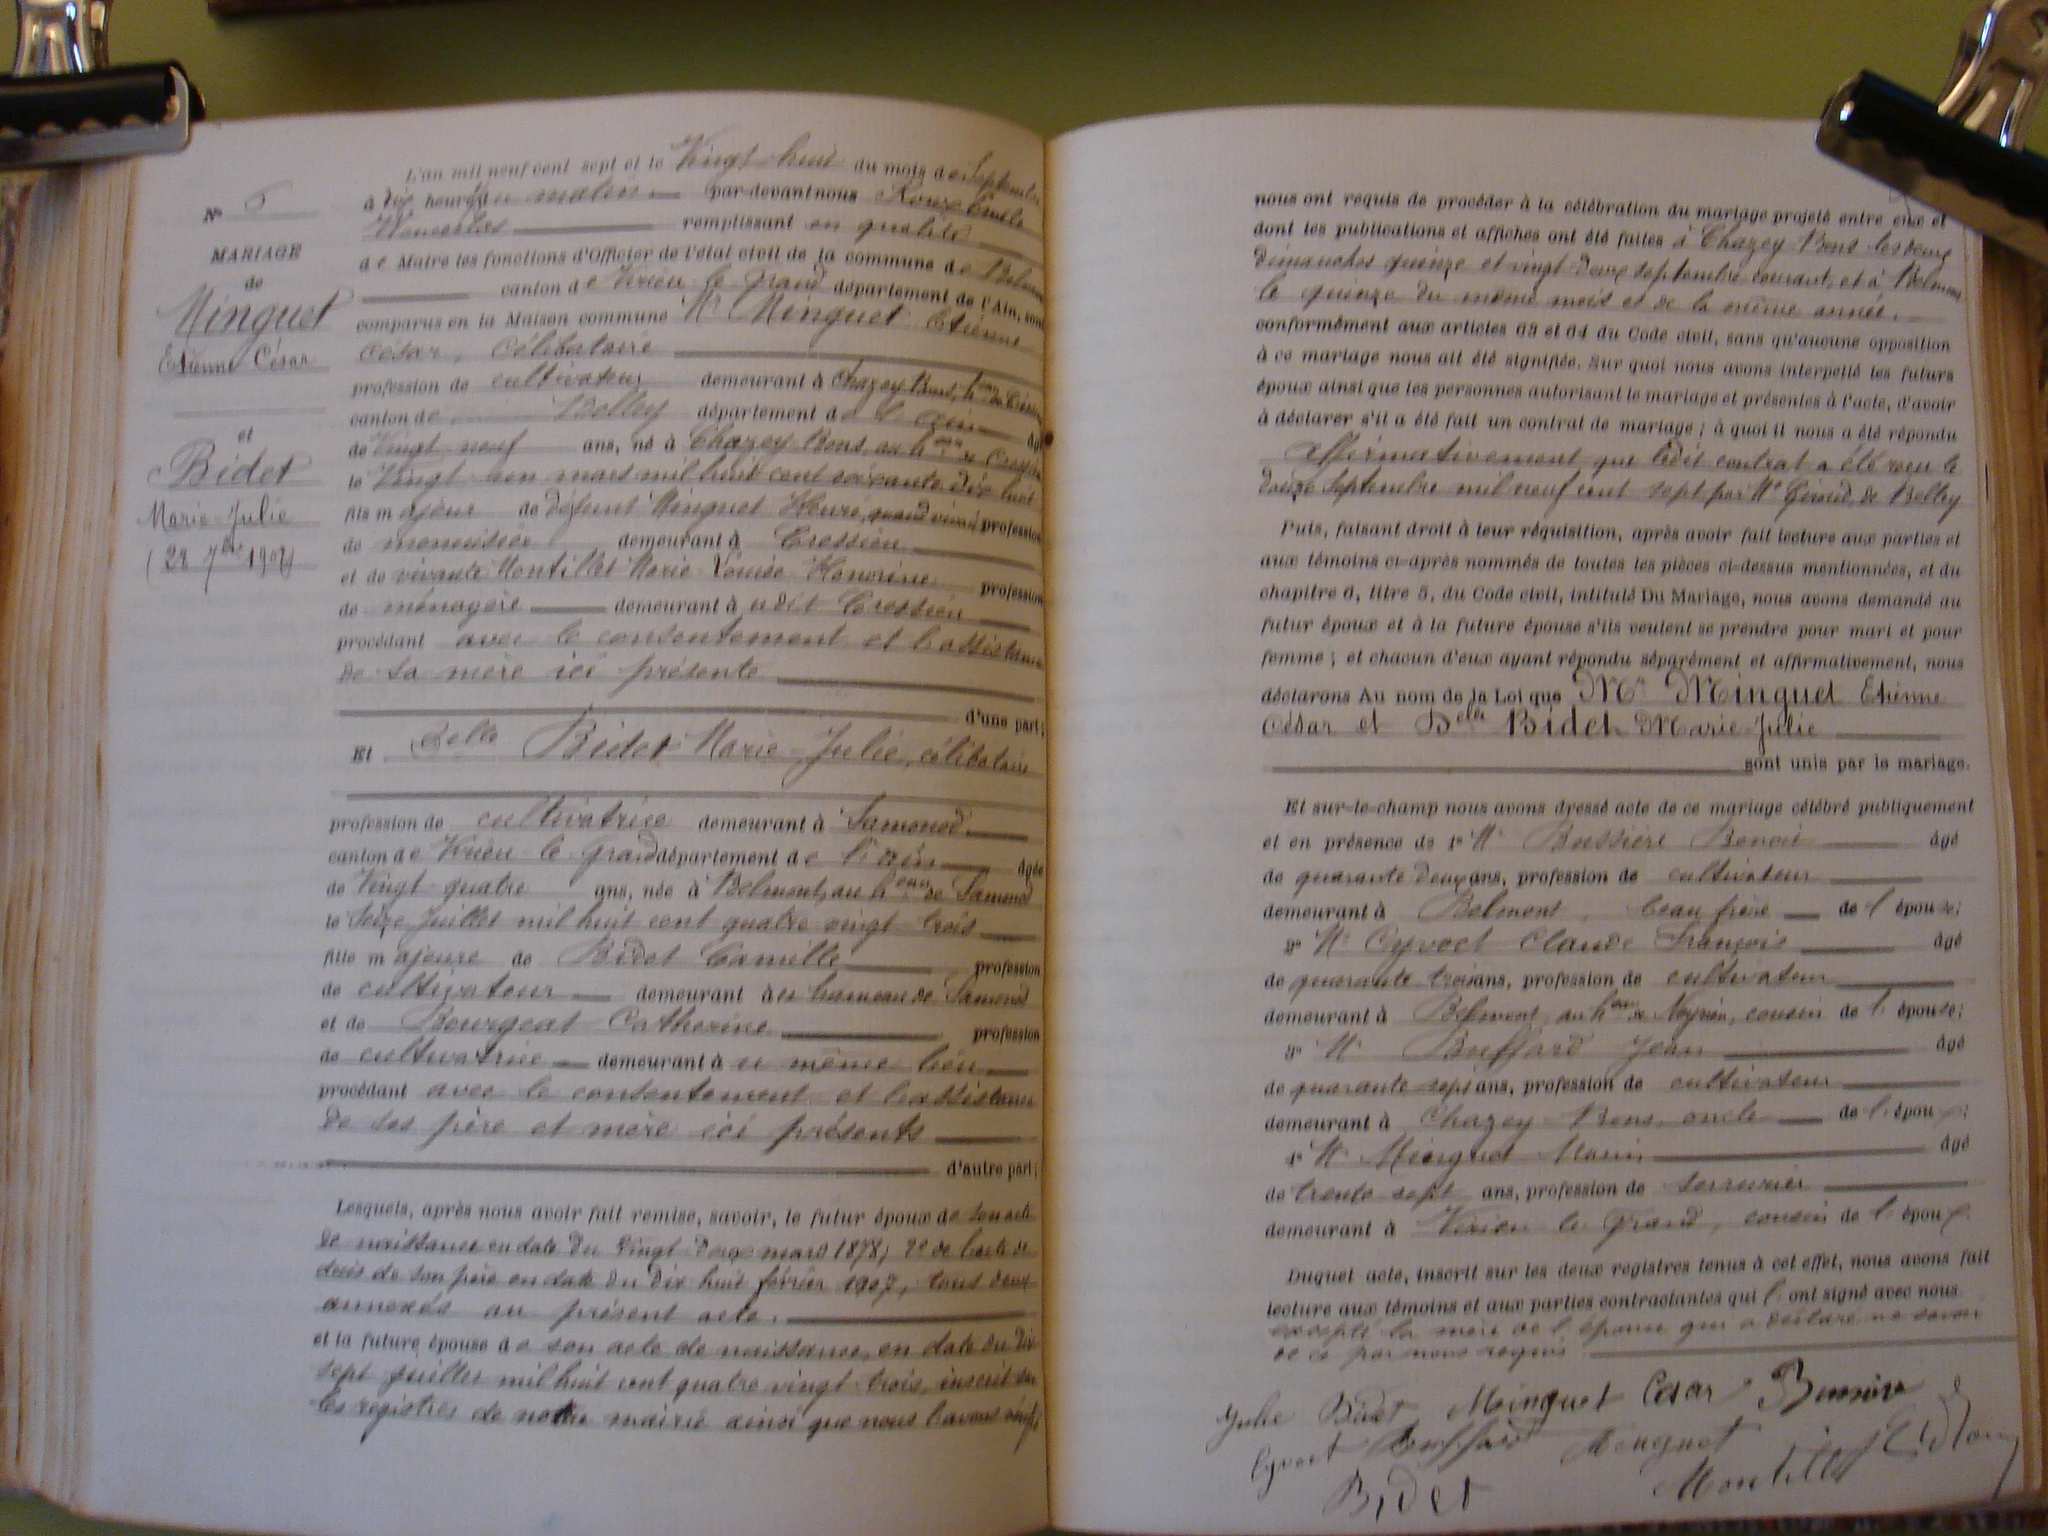 L'an mil neuf cent sept et le Vingt huit du mois de Septembre
à dix heures du matin par-devant nous
remplissant en qualité
de Maire les fonctions d'Officier de l'état civil de la commune de Belmont
canton de Virieu le grand département de l'Ain, sont
comparus en la Maison commune Mr Minguet Etienne
César, célibataire
profession de cultivateur demeurant à Chazey Bons, heau de Cressieu
canton de Belley département de l'ain âgé
de Vingt neuf ans, né à Chazey Bons, au heau de Cressieu
le Vingt un mars mil huit cent soixante dix huit
fils majeur de défunt Minguet Henri, quand vivait profession
de menuisier demeurant à Cressieu
et de vivante Montillet Marie Louise Honorine profession
de ménagère demeurant à udit Cressieu
procédant avec le consentement et l'assistance
de sa mère ici présente
d'une part;
Et Delle Bidet Marie-Julie, célibataire
profession de cultivatrice demeurant à Samonod
canton de Virieu le grand département de l'ain âgée
de Vingt quatre ans, née à Belmont, au heau de Samonod
le Seize Juillet mil huit cent quatre vingt trois
fille majeure de Bidet Camille profession
de cultivateur demeurant à u hameau de Samonod
et de Bourgeat Catherine profession
de cultivatrice demeurant à u même lieu
procédant avec le consentement et l'assistance
de ses père et mère ici présents
d'autre part;
Lesquels, après nous avoir fait remise, savoir, le futur époux de son acte
de naissance en date du vingt deux mars 1878; 2º de l'acte de
décès de son père en date du dix huit février 1907, tous deux
annexés au présent acte.
et la future épouse de son acte de naissance, en date du dix
sept juillet mil huit cent quatre vingt trois, inscrit sur
les registres de notre mairie ainsi que nous l'avons vérifié
Nº 6
MARIAGE
de
Minguet
Etienne César
et
Bidet
Marie-Julie
(28 7bre 1907)
nous ont requis de procéder à la célébration du mariage projeté entre eux et
dont les publications et affiches ont été faites à Chazey Bons les deux
dimanches quinze et vingt-deux septembre courant, et à Belmont
le quinze du même mois et de la même année.
conformément aux articles 63 et 64 du Code civil, sans qu'aucune opposition
à ce mariage nous ait été signifiée. Sur quoi nous avons interpellé les futurs
époux ainsi que les personnes autorisant le mariage et présentes à l'acte, d'avoir
à déclarer s'il a été fait un contrat de mariage; à quoi il nous a été répondu
affirmativement que ledit contrat a été reçu le
douze Septembre mil neuf cent sept par Me Giroud, de Belley
Puis, faisant droit à leur réquisition, après avoir fait lecture aux parties et
aux témoins ci-après nommés de toutes les pièces ci-dessus mentionnées, et du
chapitre 6, titre 5, du Code civil, intitulé Du Mariage, nous avons demandé au
futur époux et à la future épouse s'ils veulent se prendre pour mari et pour
femme; et chacun d'eux ayant répondu séparément et affirmativement, nous
déclarons Au nom de la Loi que Mr Minguet Etienne
César et Delle Bidet Marie-Julie
sont unis par le mariage.
Et sur-le-champ nous avons dressé acte de ce mariage célébré publiquement
et en présence de 1º Mr Bussière Benoit âgé
de quarante deux ans, profession de cultivateur
demeurant à Belmont, beau frère de l'épouse;
2º Mr Cyvoct Claude François âgé
de quarante trois ans, profession de cultivateur
demeurant à Belmont, au heau de Neyrieu, cousin de l'épouse;
3º Mr Buffard Jean âgé
de quarante sept ans, profession de cultivateur
demeurant à Chazey Bons, oncle de l'époux;
4º Mr Minguet Marin âgé
de trente sept ans, profession de serrurier
demeurant à Virieu le Grand, cousin de l'époux.
Duquel acte, inscrit sur les deux registres tenus à cet effet, nous avons fait
lecture aux témoins et aux parties contractantes qui l' ont signé avec nous
excepté la mère de l'épouse qui a déclaré ne savoir
de ce par nous requis
Julie Bidet Minguet César Bussière
Cyvoct Buffard Minguet
Bidet Montillet